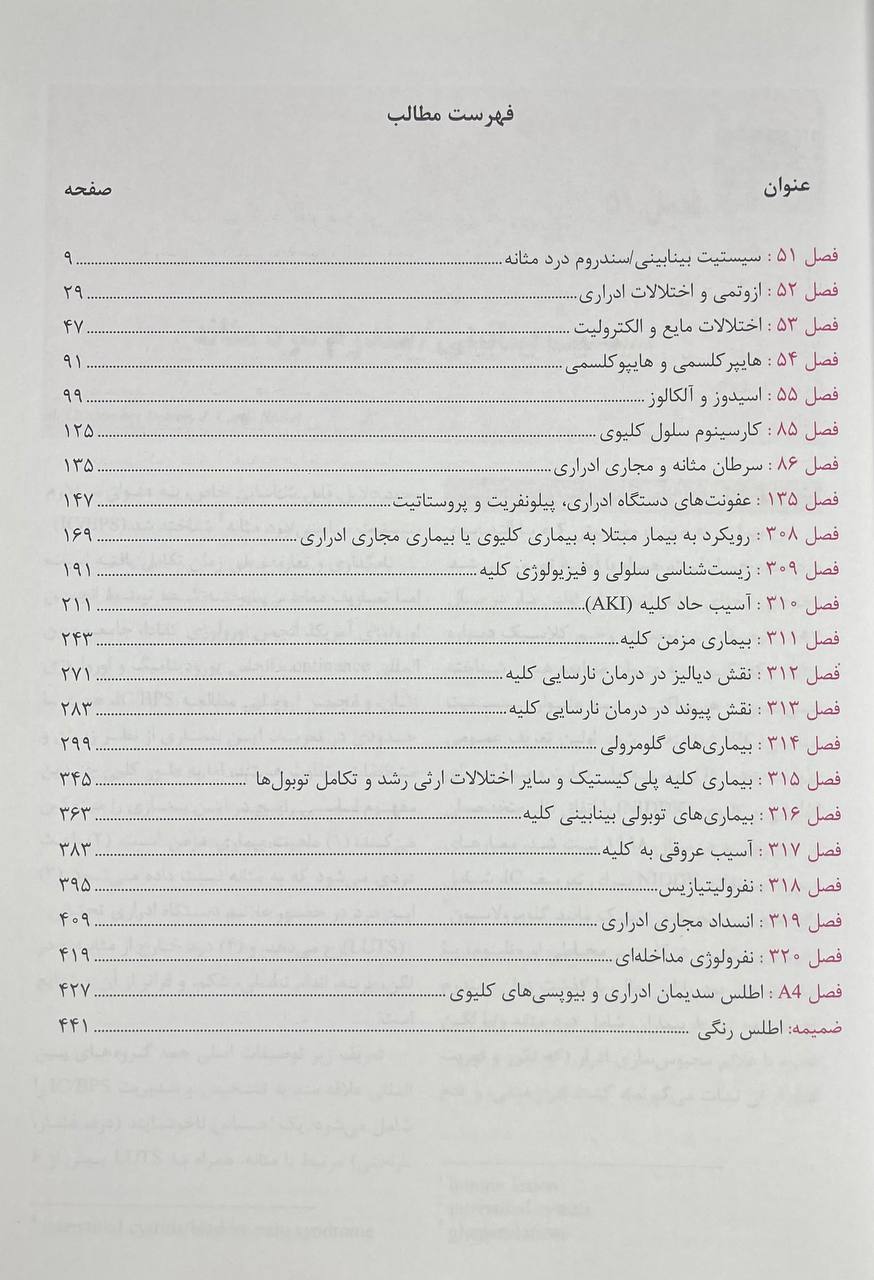 فهرست مطالب
عنوان صفحه
فصل ۵۱ : سیستیت بینابینی/سندروم درد مثانه ۹
فصل ۵۲ : ازوتمی و اختلالات ادراری ۲۹
فصل ۵۳ : اختلالات مایع و الکترولیت ۴۷
فصل ۵۴ : هایپرکلسمی و هایپوکلسمی ۹۱
فصل ۵۵ : اسیدوز و آلکالوز ۹۹
فصل ۸۵ : کارسینوم سلول کلیوی ۱۲۵
فصل ۸۶ : سرطان مثانه و مجاری ادراری ۱۳۵
فصل ۱۳۵ : عفونت‌های دستگاه ادراری، پیلونفریت و پروستاتیت ۱۴۷
فصل ۳۰۸ : رویکرد به بیمار مبتلا به بیماری کلیوی یا بیماری مجاری ادراری ۱۶۹
فصل ۳۰۹ : زیست‌شناسی سلولی و فیزیولوژی کلیه ۱۹۱
فصل ۳۱۰ : آسیب حاد کلیه (AKI) ۲۱۱
فصل ۳۱۱ : بیماری مزمن کلیه ۲۴۳
فصل ۳۱۲ : نقش دیالیز در درمان نارسایی کلیه ۲۷۱
فصل ۳۱۳ : نقش پیوند در درمان نارسایی کلیه ۲۸۳
فصل ۳۱۴ : بیماری‌های گلومرولی ۲۹۹
فصل ۳۱۵ : بیماری کلیه پلی‌کیستیک و سایر اختلالات ارثی رشد و تکامل توبول‌ها ۳۴۵
فصل ۳۱۶ : بیماری‌های توبولی بینابینی کلیه ۳۶۳
فصل ۳۱۷ : آسیب عروقی به کلیه ۳۸۳
فصل ۳۱۸ : نفرولیتیازیس ۳۹۵
فصل ۳۱۹ : انسداد مجاری ادراری ۴۰۹
فصل ۳۲۰ : نفرولوژی مداخله‌ای ۴۱۹
فصل A4 : اطلس سدیمان ادراری و بیوپسی‌های کلیوی ۴۲۷
ضمیمه: اطلس رنگی ۴۴۱